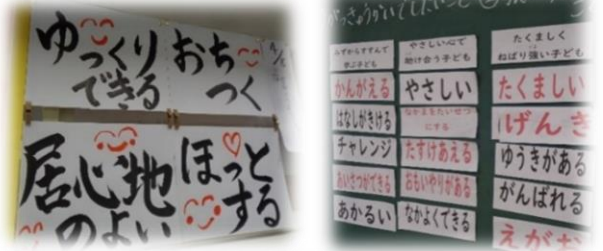 ゆっくり
できる
おち
つく
居心地
のよい
ほっと
する
みずからすすんで
学ぶ子ども
かんがえる
はなしがきける
チャレンジ
あいさつができる
あかるい
やさしい心で
助け合う子ども
やさしい
なかまをたいせつ
にする
たすけあえる
おもいやりがある
なかよくできる
たくましく
ねばり強い子ども
たくましい
げんき
ゆうきがある
がんばれる
えがお